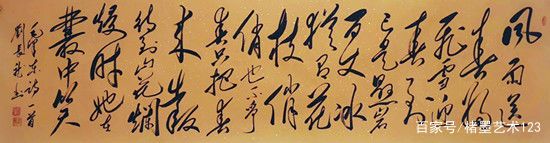 风雨送
春归
飞雪迎
春到
已是悬崖
百丈冰
犹有花
枝俏
俏也不争
春只把春
来报
待到山花烂
漫时她在
丛中笑
毛泽东诗一首
百家号/楮墨艺术123